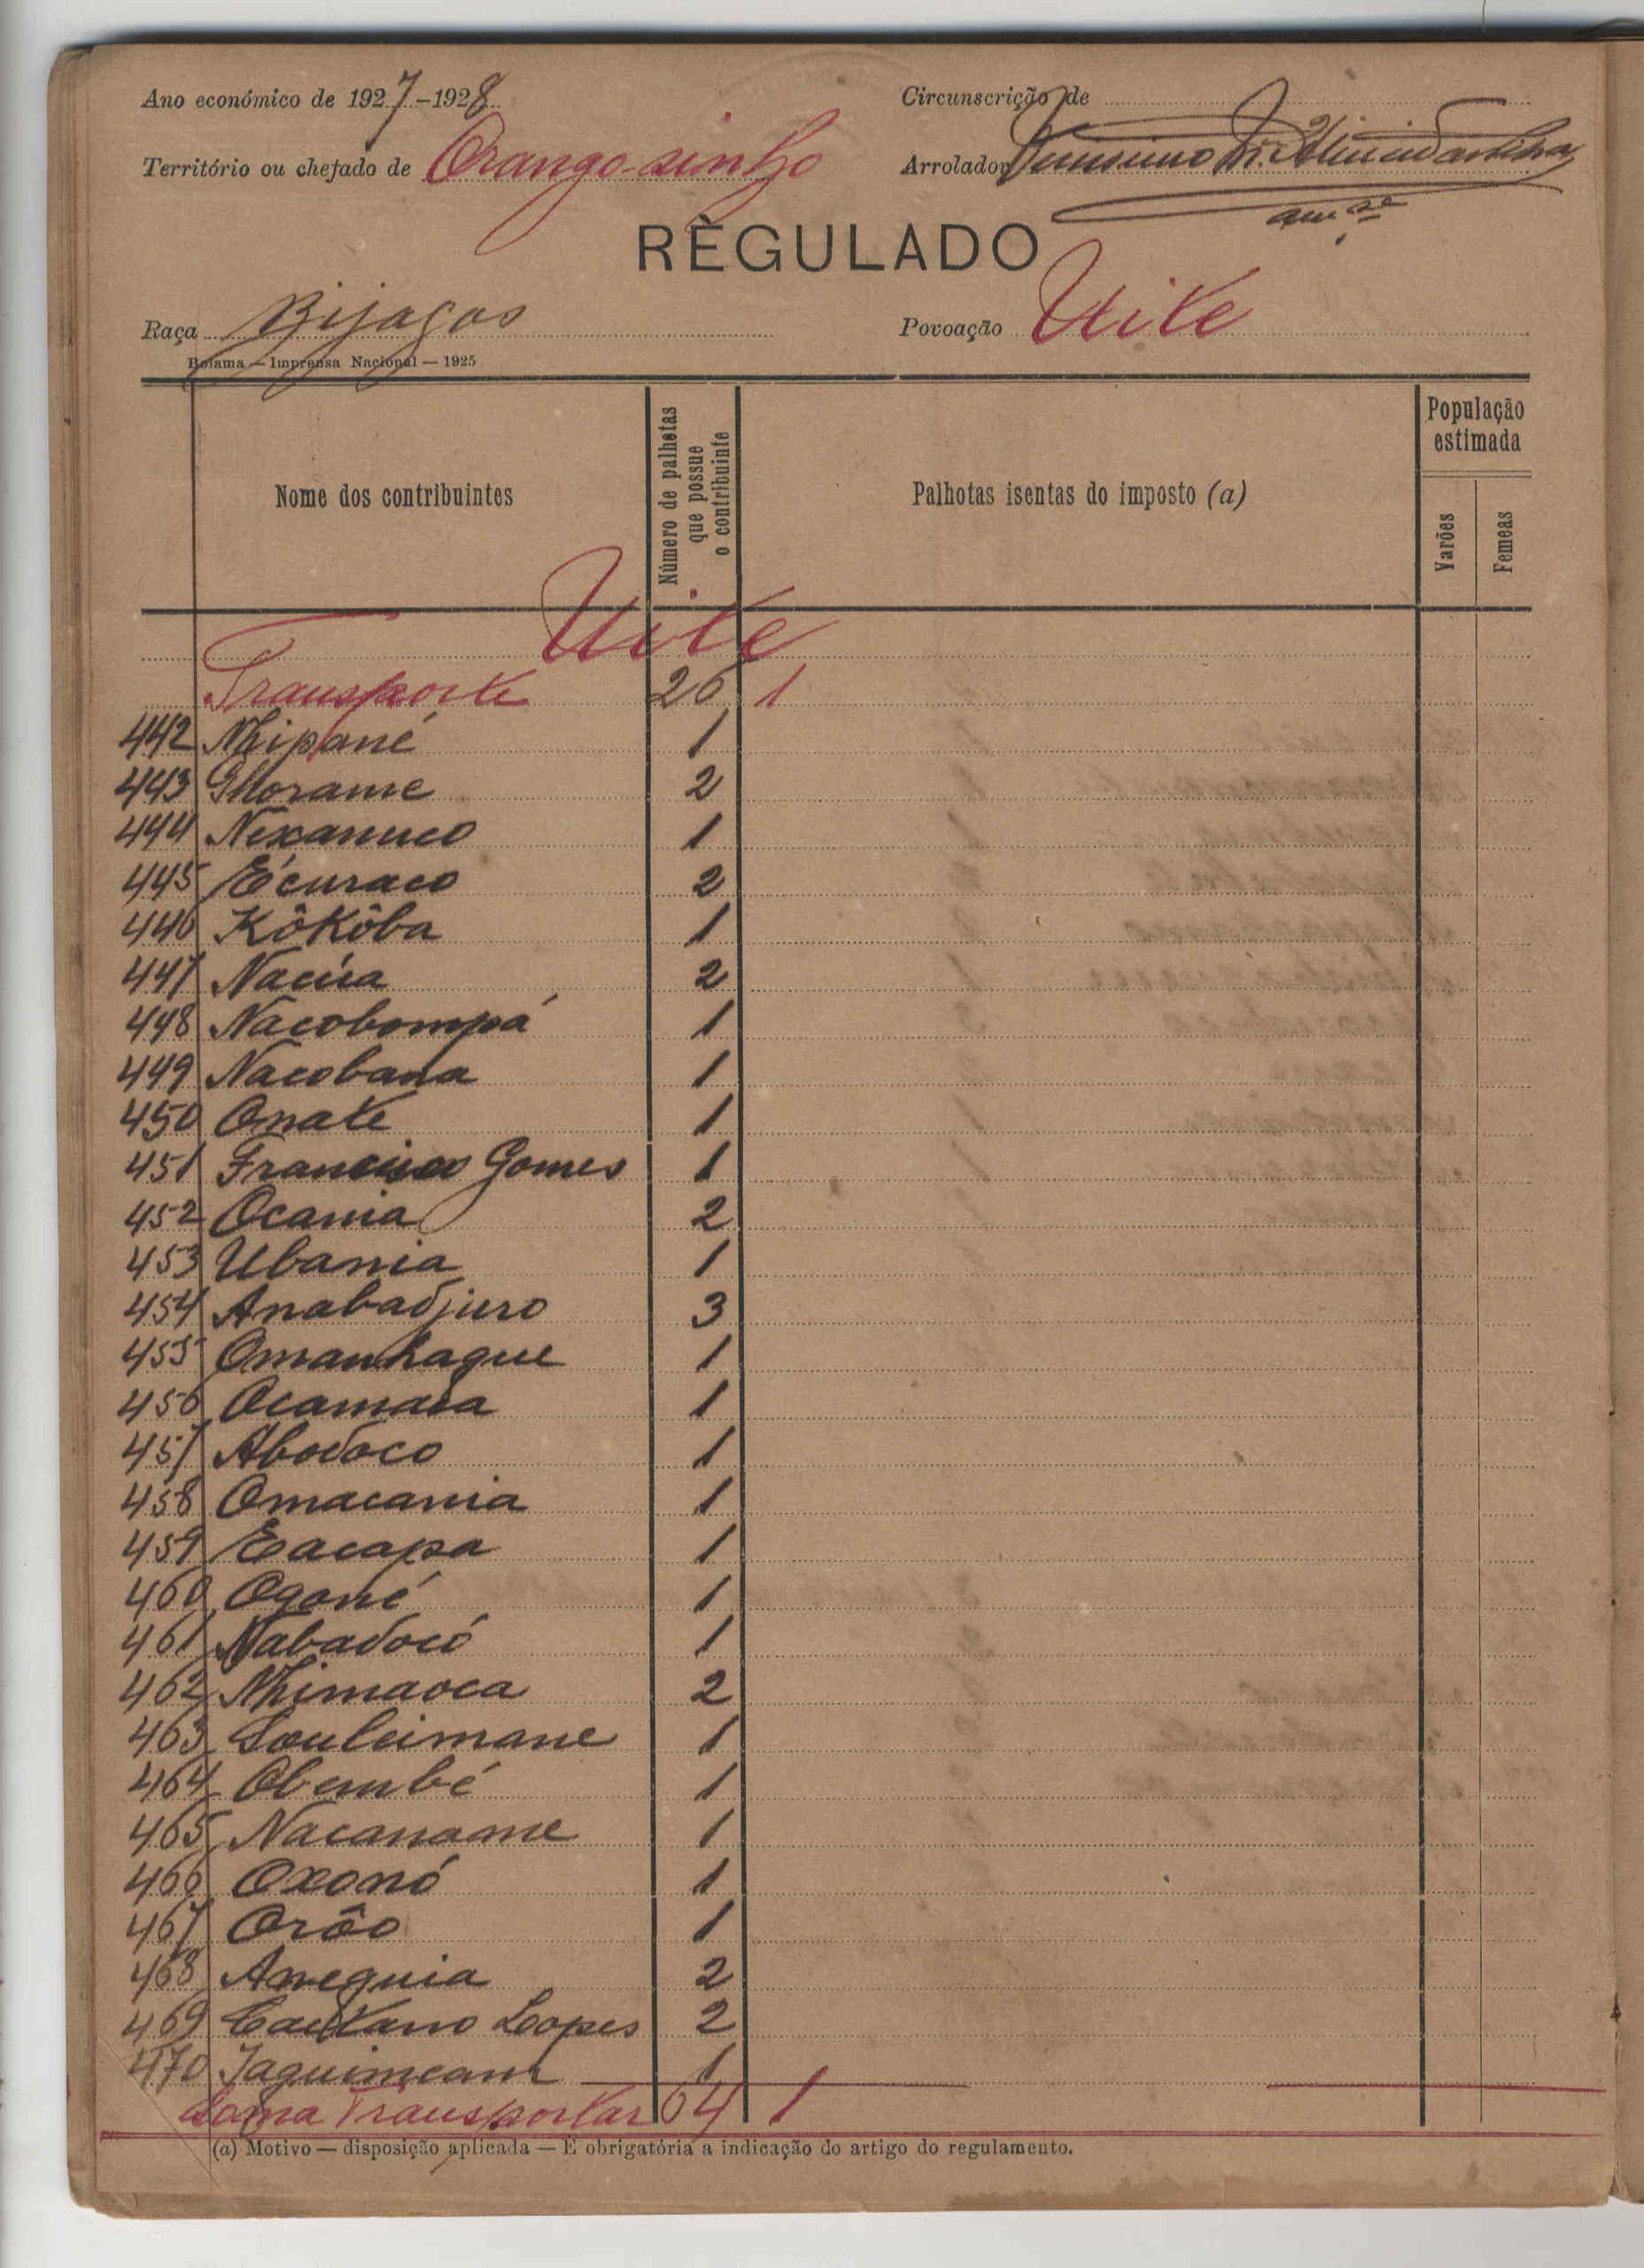 Ano económico de 1927-1928
Circunscrição de
Território ou chefado de Orango-sinho
Arrolador
REGULADO
Raça Bijagos
Povoação Uite
Bolama — Imprensa Nacional — 1925
Nome dos contribuintes
Número de palhotas que possue o contribuinte
Palhotas isentas do imposto (a)
População estimada
Varões
Femeas
Uite
Transporte 26 1
442 Nhipané 1
443 Morame 2
444 Nexanuco 1
445 Écuraco 2
446 Kôkôba 1
447 Nacúa 2
448 Nacobompá 1
449 Nacobana 1
450 Onake 1
451 Francisco Gomes 1
452 Ocania 2
453 Ubania 1
454 Anabadjuro 3
455 Omanhaque 1
456 Ocamaia 1
457 Abodoco 1
458 Omacania 1
459 Eacapa 1
460 Ogané 1
461 Nabadocó 1
462 Nhimaoca 2
463 Souleimane 1
464 Obembé 1
465 Nacaname 1
466 Oxonó 1
467 Orôo 1
468 Aneguia 2
469 Caetano Lopes 2
470 Jaquimeam 1
Soma Transportar 64 1
(a) Motivo — disposição aplicada — É obrigatória a indicação do artigo do regulamento.